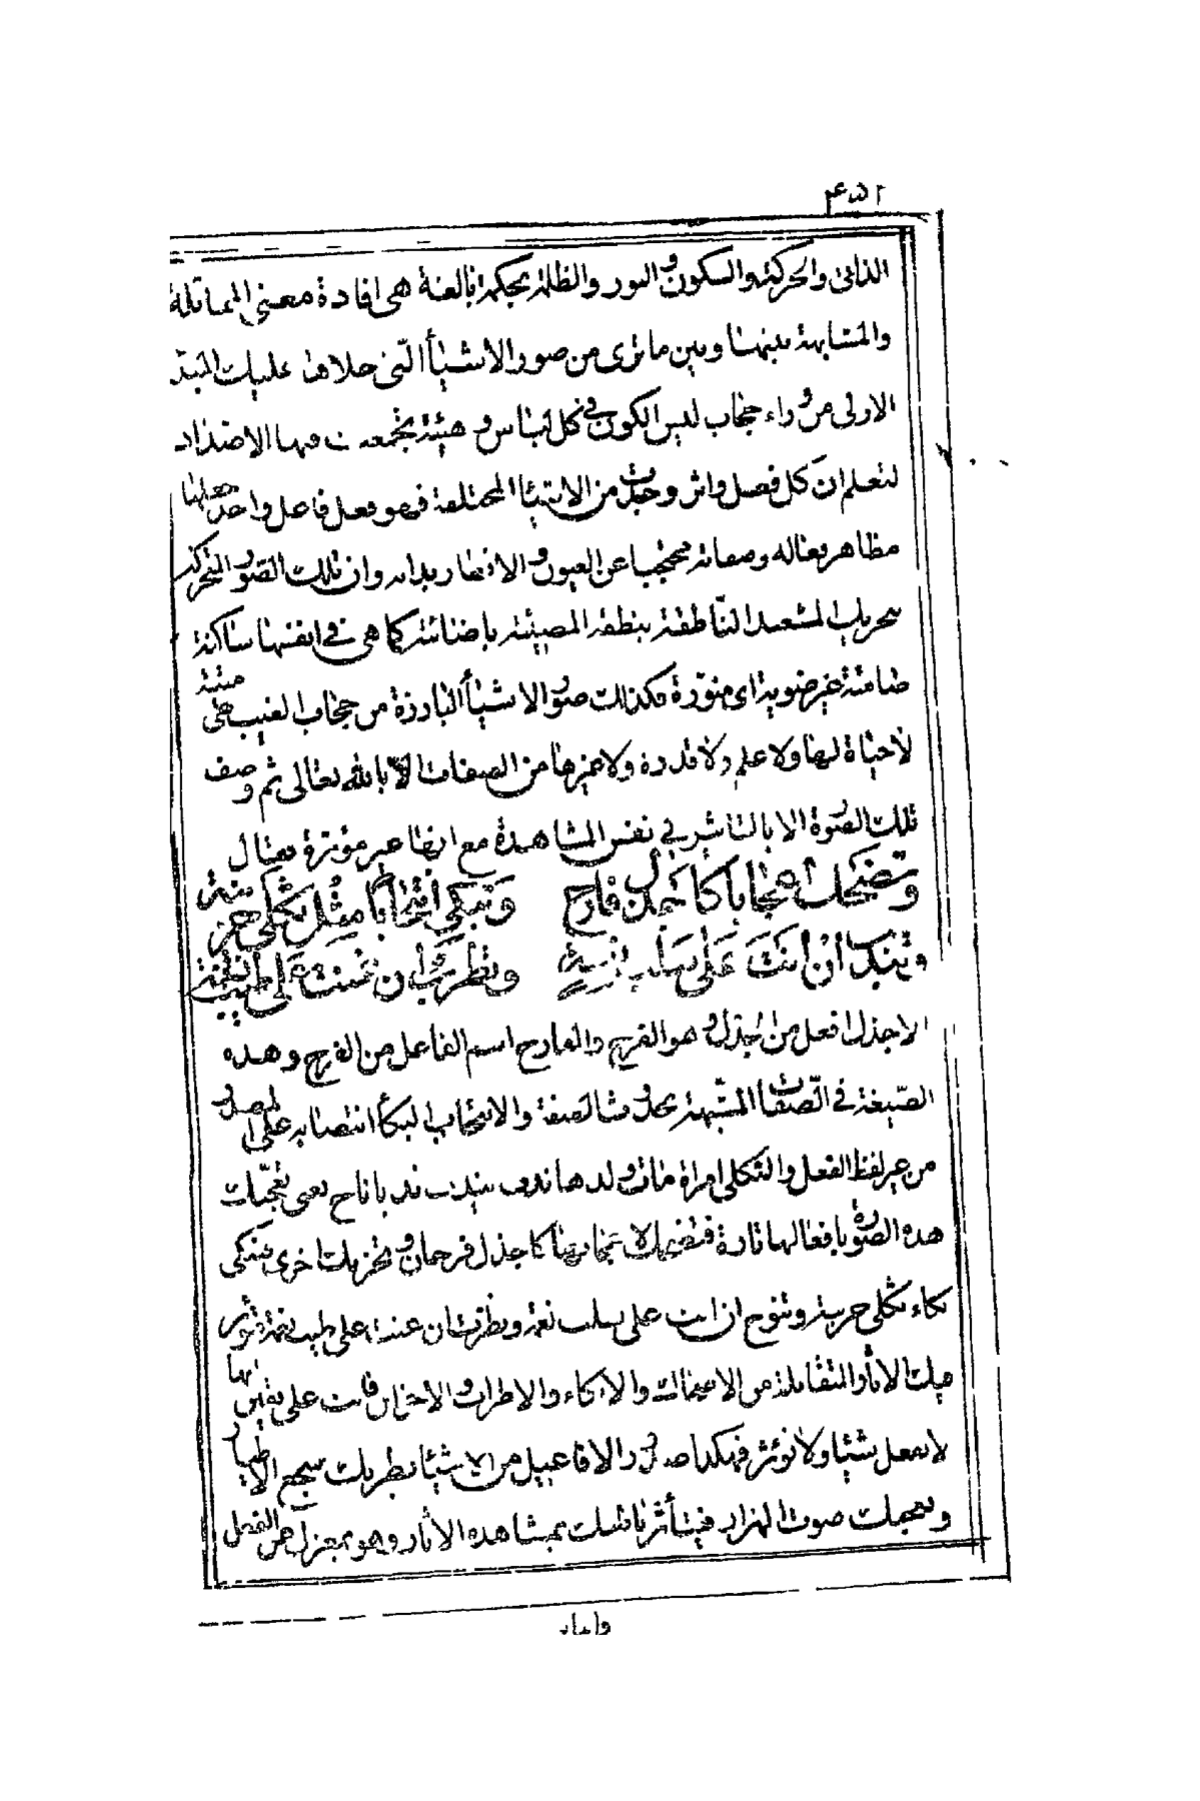 الذاتى والحركة والسكون والنور والظلمة بحكمة بالغة هى افادة معنى المماثلة
والمشابهة بينهما وبين ما ترى من صور الاشيأ التى جلاها عليك
الاولى من وراء حجاب لبس الكون فى كل لباس و هيئة تجمعت فيها الاضداد
لتعلم ان كل فصل واثر وحدث من الاشيأ المختلفة فهو فعل فاعل واحد جعلها
مظاهر فعاله وصفاته محتجبا عن العيون والافكار بذاته وان تلك الصور المتحركة
بتحريك المشعبد الناطقة بنطقه المضيئة باضائته كما هى فى انفسها ساكنة
صامتة غير ضوية اى منورة فكذلك صور الاشيأ البارزة من حجاب الغيب هى ميتة
لا حياة لها ولا علم ولا قدرة ولا غيرها من الصفات الا بالله تعالى ثم وصف
تلك الصورة الا بالتاثير فى نفس المشاهدة مع انها غير مؤثرة فقال
وتضحك اعجابا كاجذل فارح وتبكى انتحابا مثل ثكلى حزينة
وتندب ان انت على سلب نعمة وتطرب ان غنت على طيب نغمة
الاجذل افعل من الجذل وهو الفرح والفارح اسم الفاعل من الفرح وهذه
الصيغة فى الصفات المشبهة والانتحاب البكأ انتصابه على المصدر
من غير لفظ الفعل والثكلى امراة مات ولدها ندب يندب ندبا ناح يعنى تعجبك
هذه الصورة بافعالها تارة فتضحك اعجابا بها كاجذل فرحان وتحزنك اخرى فتبكى
بكاء ثكلى حزينة وتنوح ان انت على سلب نعمة وتطرب ان غنت على طيب نغمة فتؤثر
فيك الاثار المتقابلة من الاضحاك والابكاء والاطراب والاحزان فانت على يقين انها
لا تفعل شيئا ولا تؤثر فهكذا صدور الافاعيل من الاشيأ يطربك سجع الاطيار
ويعجبك صوت الهزار فيتأثر باطنك بمشاهدة الاثار وهو بمعزل عن الفعل